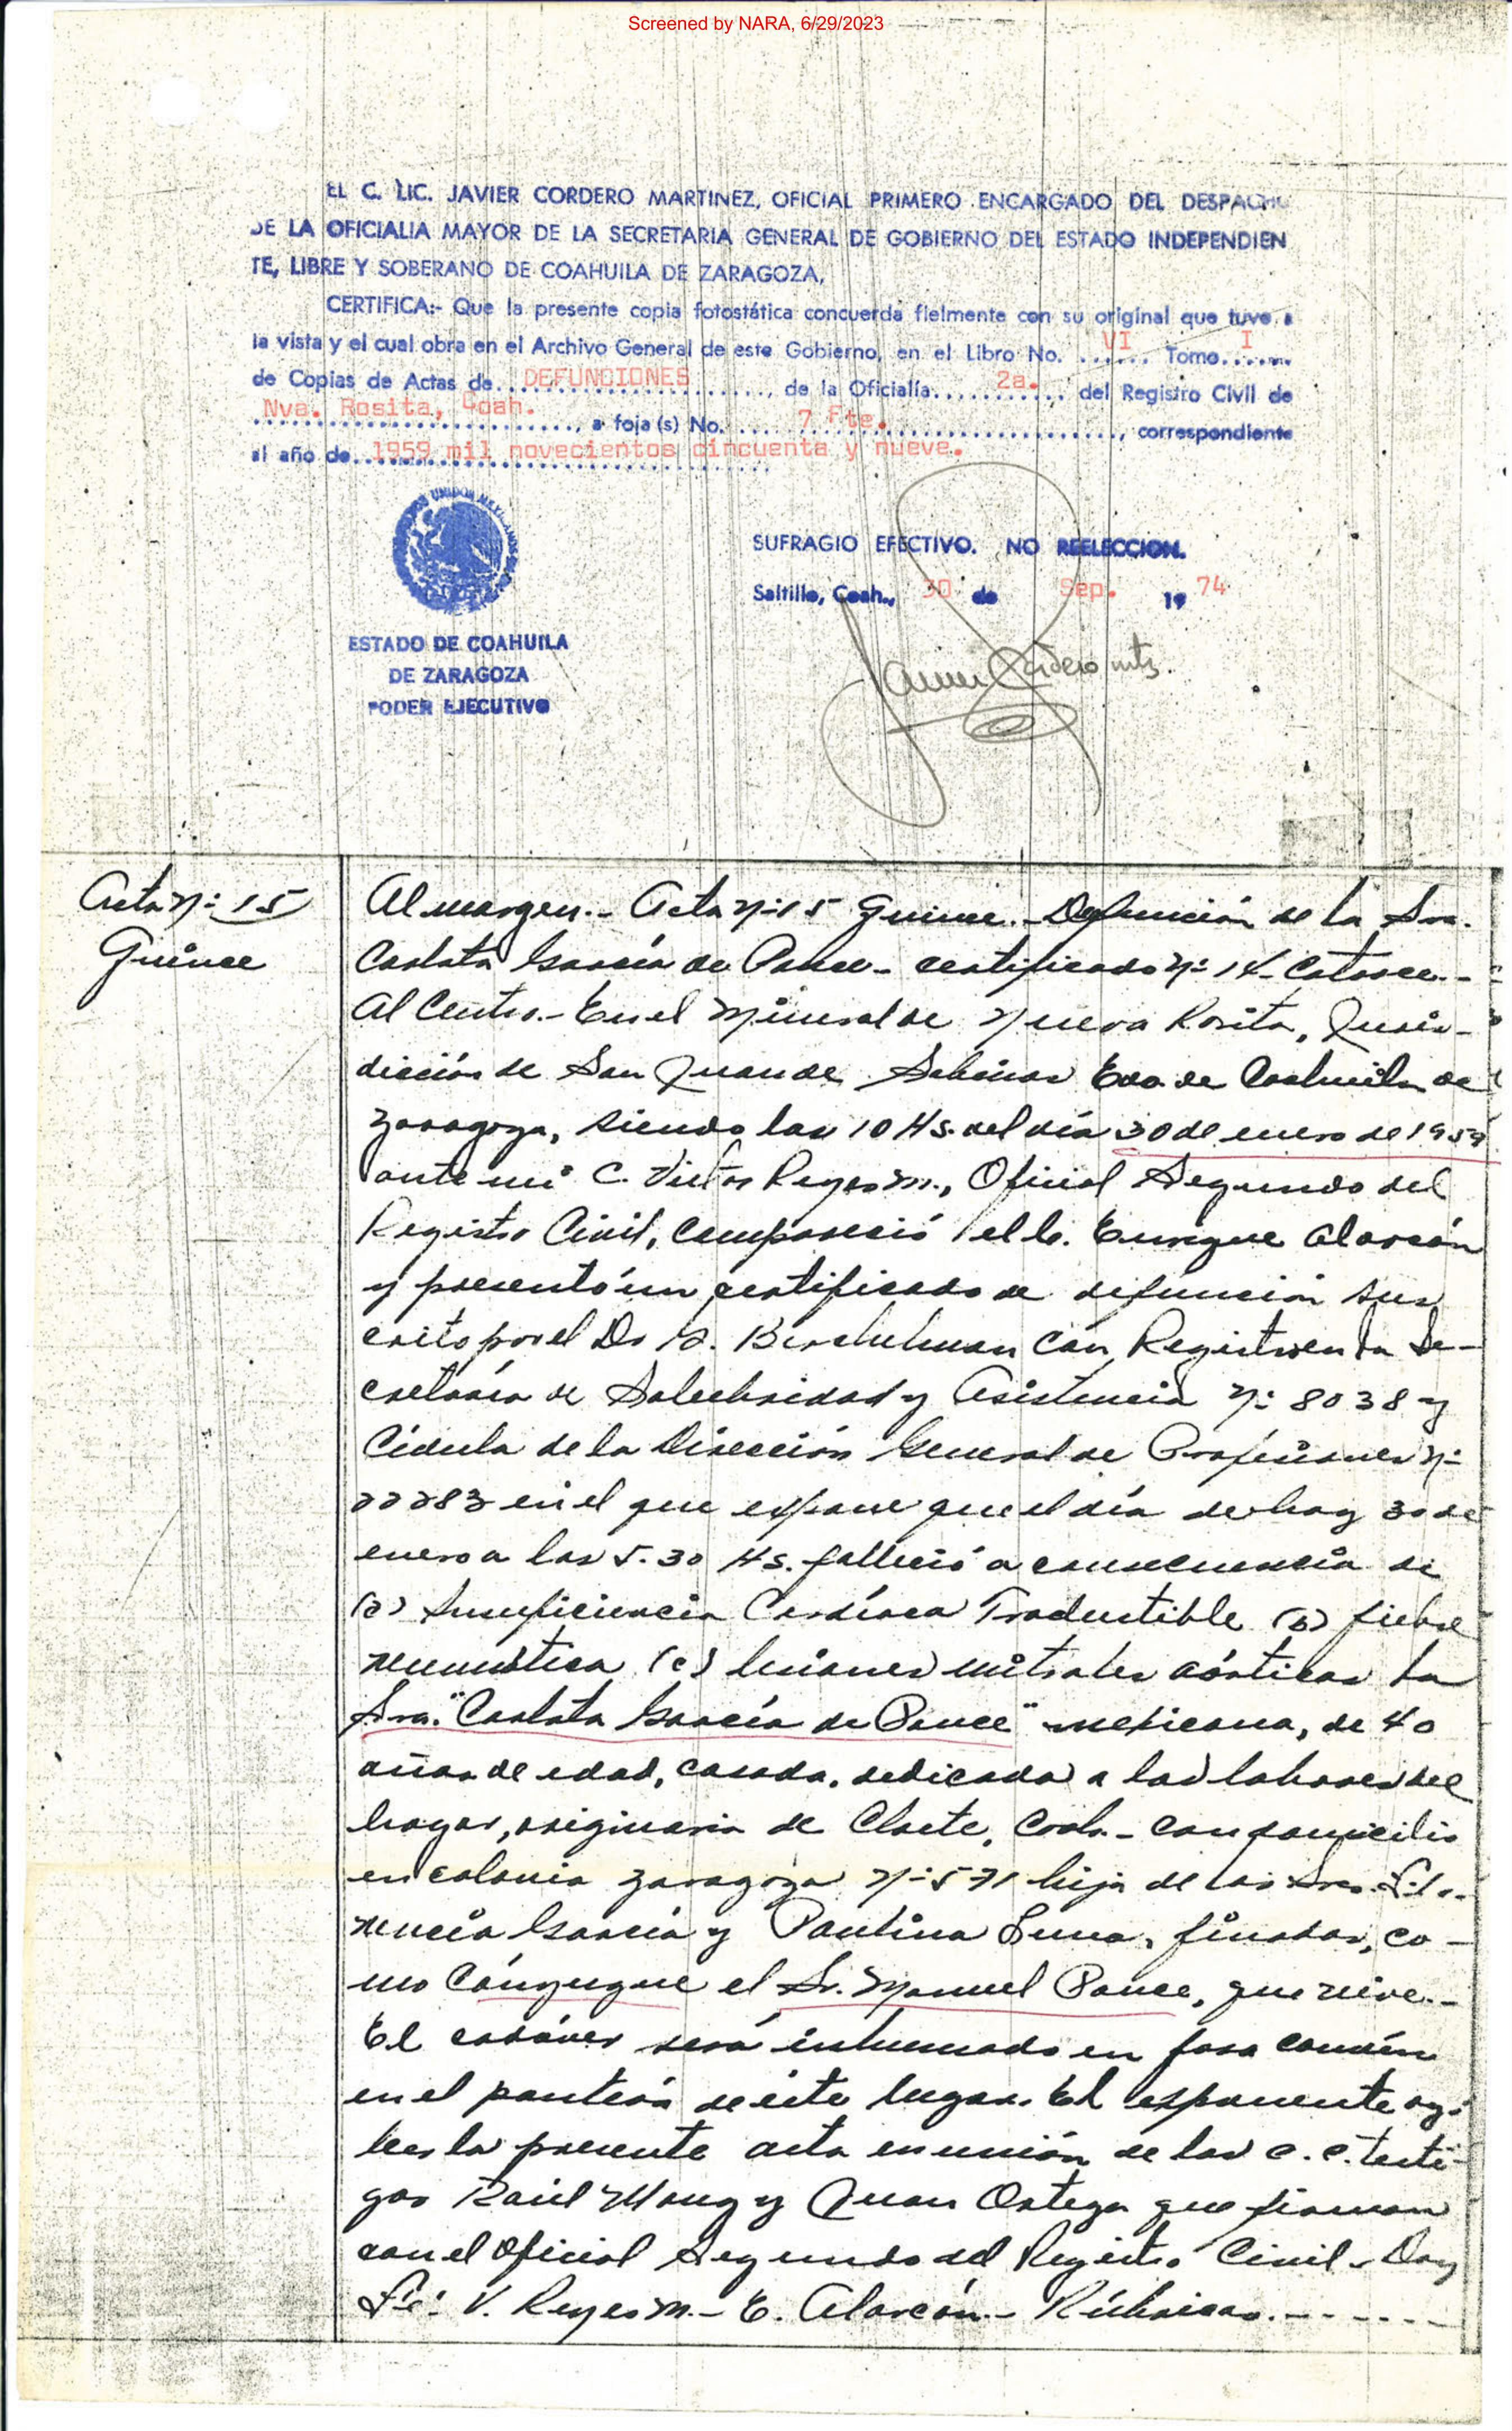 Screened by NARA, 6/29/2023
EL C. LIC. JAVIER CORDERO MARTINEZ, OFICIAL PRIMERO ENCARGADO DEL DESPACHO
DE LA OFICIALIA MAYOR DE LA SECRETARIA GENERAL DE GOBIERNO DEL ESTADO INDEPENDIEN
TE, LIBRE Y SOBERANO DE COAHUILA DE ZARAGOZA,
CERTIFICA:- Que la presente copia fotostática concuerda fielmente con su original que tuve a
la vista y el cual obra en el Archivo General de este Gobierno, en el Libro No. VI Tomo I
de Copias de Actas de DEFUNCIONES, de la Oficialía 2a. del Registro Civil de
Nva. Rosita, Coah., a foja (s) No. 7 Fte., correspondiente
al año de 1959 mil novecientos cincuenta y nueve.
UNIDOS MEXICANOS
SUFRAGIO EFECTIVO. NO REELECCION.
Saltillo, Coah., 30 de Sep. 19 74
ESTADO DE COAHUILA
DE ZARAGOZA
PODER EJECUTIVO
Javier Cordero mtz.
Acta Nº 15
Quince
Al margen.- Acta Nº 15 Quince.- Defunción de la Sra.
Carlota García de Ponce- certificado Nº 14- Catorce.-
Al Centro.- En el Mineral de Nueva Rosita, Juris-
dicción de San Juan de Sabinas Edo. de Coahuila de
Zaragoza, siendo las 10 Hs. del día 30 de enero de 1959
ante mi C. Victor Reyes M., Oficial Segundo del
Registro Civil, compareció el C. Enrique Alarcón
y presentó un certificado de defunción sus
crito por el Dr. con Registro en la Se-
cretaría de Salubridad y Asistencia Nº 8038 y
Cédula de la Dirección General de Profesiones Nº
22283 en el que expone que el día de hoy 30 de
enero a las 5.30 Hs. falleció a consecuencia de
(a) Insuficiencia Cardíaca (b) fiebre
reumática (c) lesiones mitrales aórticas la
Sra. "Carlota García de Ponce" mexicana, de 40
años de edad, casada, dedicada a las labores del
hogar, originaria de Cloete, Coah.- con domicilio
en colonia Zaragoza Nº 571 hija de los Sres.
García y Paulina Luna, finados, co-
mo Cónyugue el Sr. Manuel Ponce, que vive.-
El cadáver será inhumado en fosa común
en el panteón de éste lugar. El exponente
la presente acta en unión de los C. C. testi-
gos Raúl y Juan Ortega que firman
con el Oficial Segundo del Registro Civil- Doy
Fé: V. Reyes M.- E. Alarcón.- Rúbricas.- - - - - -